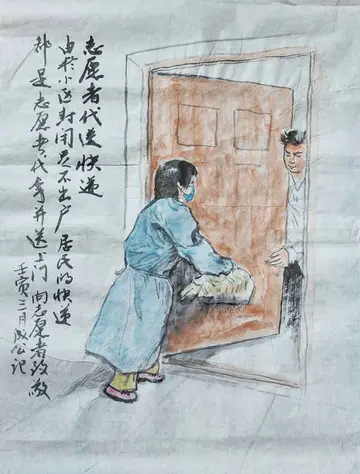 志愿者代送快递
由於小区封闭足不出户 居民的快递
都是志愿者代拿并送上门 向志愿者致敬
壬寅三月成公记